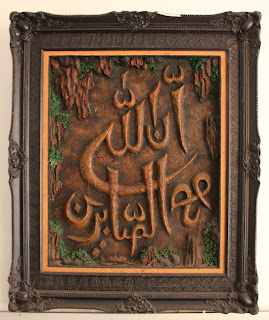 أن الله
مع الصابرين